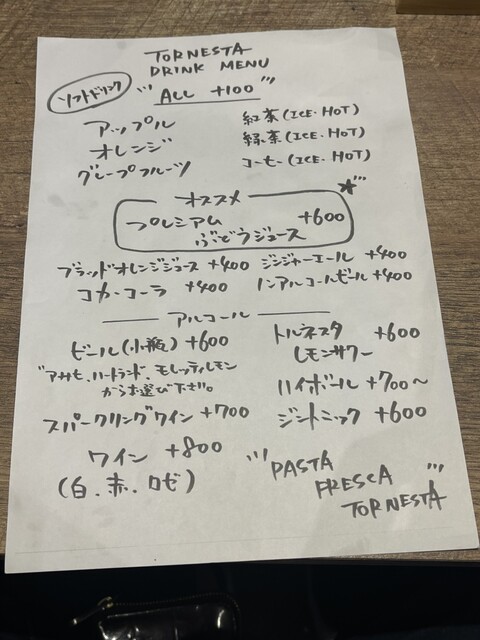 TORNESTA
DRINK MENU
ソフトドリンク
ALL +100
アップル
オレンジ
グレープフルーツ
紅茶(ICE・HOT)
緑茶(ICE・HOT)
コーヒー(ICE・HOT)
オススメ
プレミアム
ぶどうジュース +600
ブラッドオレンジジュース +400
コカ・コーラ +400
ジンジャーエール +400
ノンアルコールビール +400
アルコール
ビール(小瓶) +600
アサヒ、ハートランド、モレッティレモン
からお選び下さい。
スパークリングワイン +700
ワイン +800
(白・赤・ロゼ)
トルネスタ +600
レモンサワー
ハイボール +700〜
ジントニック +600
PASTA
FRESCA
TORNESTA